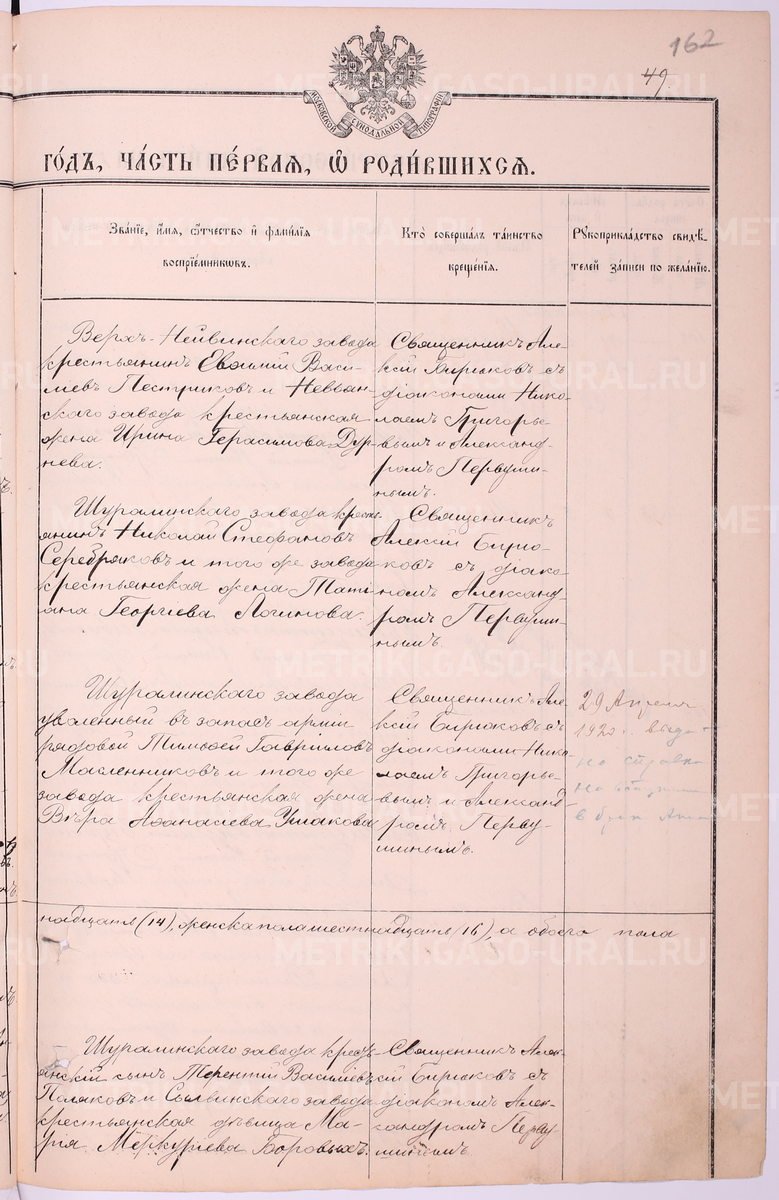 162
49.
МОСКОВСКОЙ СѴНОДАЛЬНОЙ ТИПОГРАФІИ
ГО́ДЪ, ЧА́СТЬ ПЕ́РВАЯ, Ѽ РОДИ́ВШИХСЯ.
Зва́нїе, и́мя, ѻ҆́тчество и҆ фами́лїя
воспрїе́мниковъ.
Кто̀ соверша́лъ та́инство
креще́нїя.
Рꙋкоприкла́дство свидѣ́-
телей за́писи по жела́нїю.
Верхъ-Нейвинскаго завода
крестьянинъ Евѳимій Васи-
льевъ Пестриковъ и Невьян-
скаго завода крестьянская
жена Ирина Герасимова Дур-
нева.
Священникъ Але-
ксій Бирюковъ съ
діаконами Нико-
лаемъ Григорье-
вымъ и Александ-
ромъ Первуши-
нымъ.
Шуралинскаго завода кресть-
янинъ Николай Стефановъ
Серебряковъ и того же завода
крестьянская жена Тать-
ана Георгіева Логинова.
Священникъ
Алексій Бирю-
ковъ съ діако-
номъ Александ-
ромъ Первуши-
нымъ.
Шуралинскаго завода
уволенный въ запасъ арміи
рядовой Тимоѳей Гавріиловъ
Масленниковъ и того же
завода крестьянская жена
Вѣра Аѳанасіева Ушакова
Священникъ Але-
ксій Бирюковъ съ
діаконами Нико-
лаемъ Григорье-
вымъ и Александ-
ромъ Перву-
шинымъ.
29 Апреля
192 г. выда-
на справка
на
в брак
надцать (14), женска пола шестнадцать (16), а обоего пола
Шуралинскаго завода кресть-
янскій сынъ Терентій Васильевъ
Поляковъ и Сылвинскаго завода
крестьянская дѣвица Ма-
рія Меркуріева Боровыхъ.
Священникъ Алек-
сій Бирюковъ съ
діакономъ Алек-
сандромъ Перву-
шинымъ.
METRIKI.GASO-URAL.RU